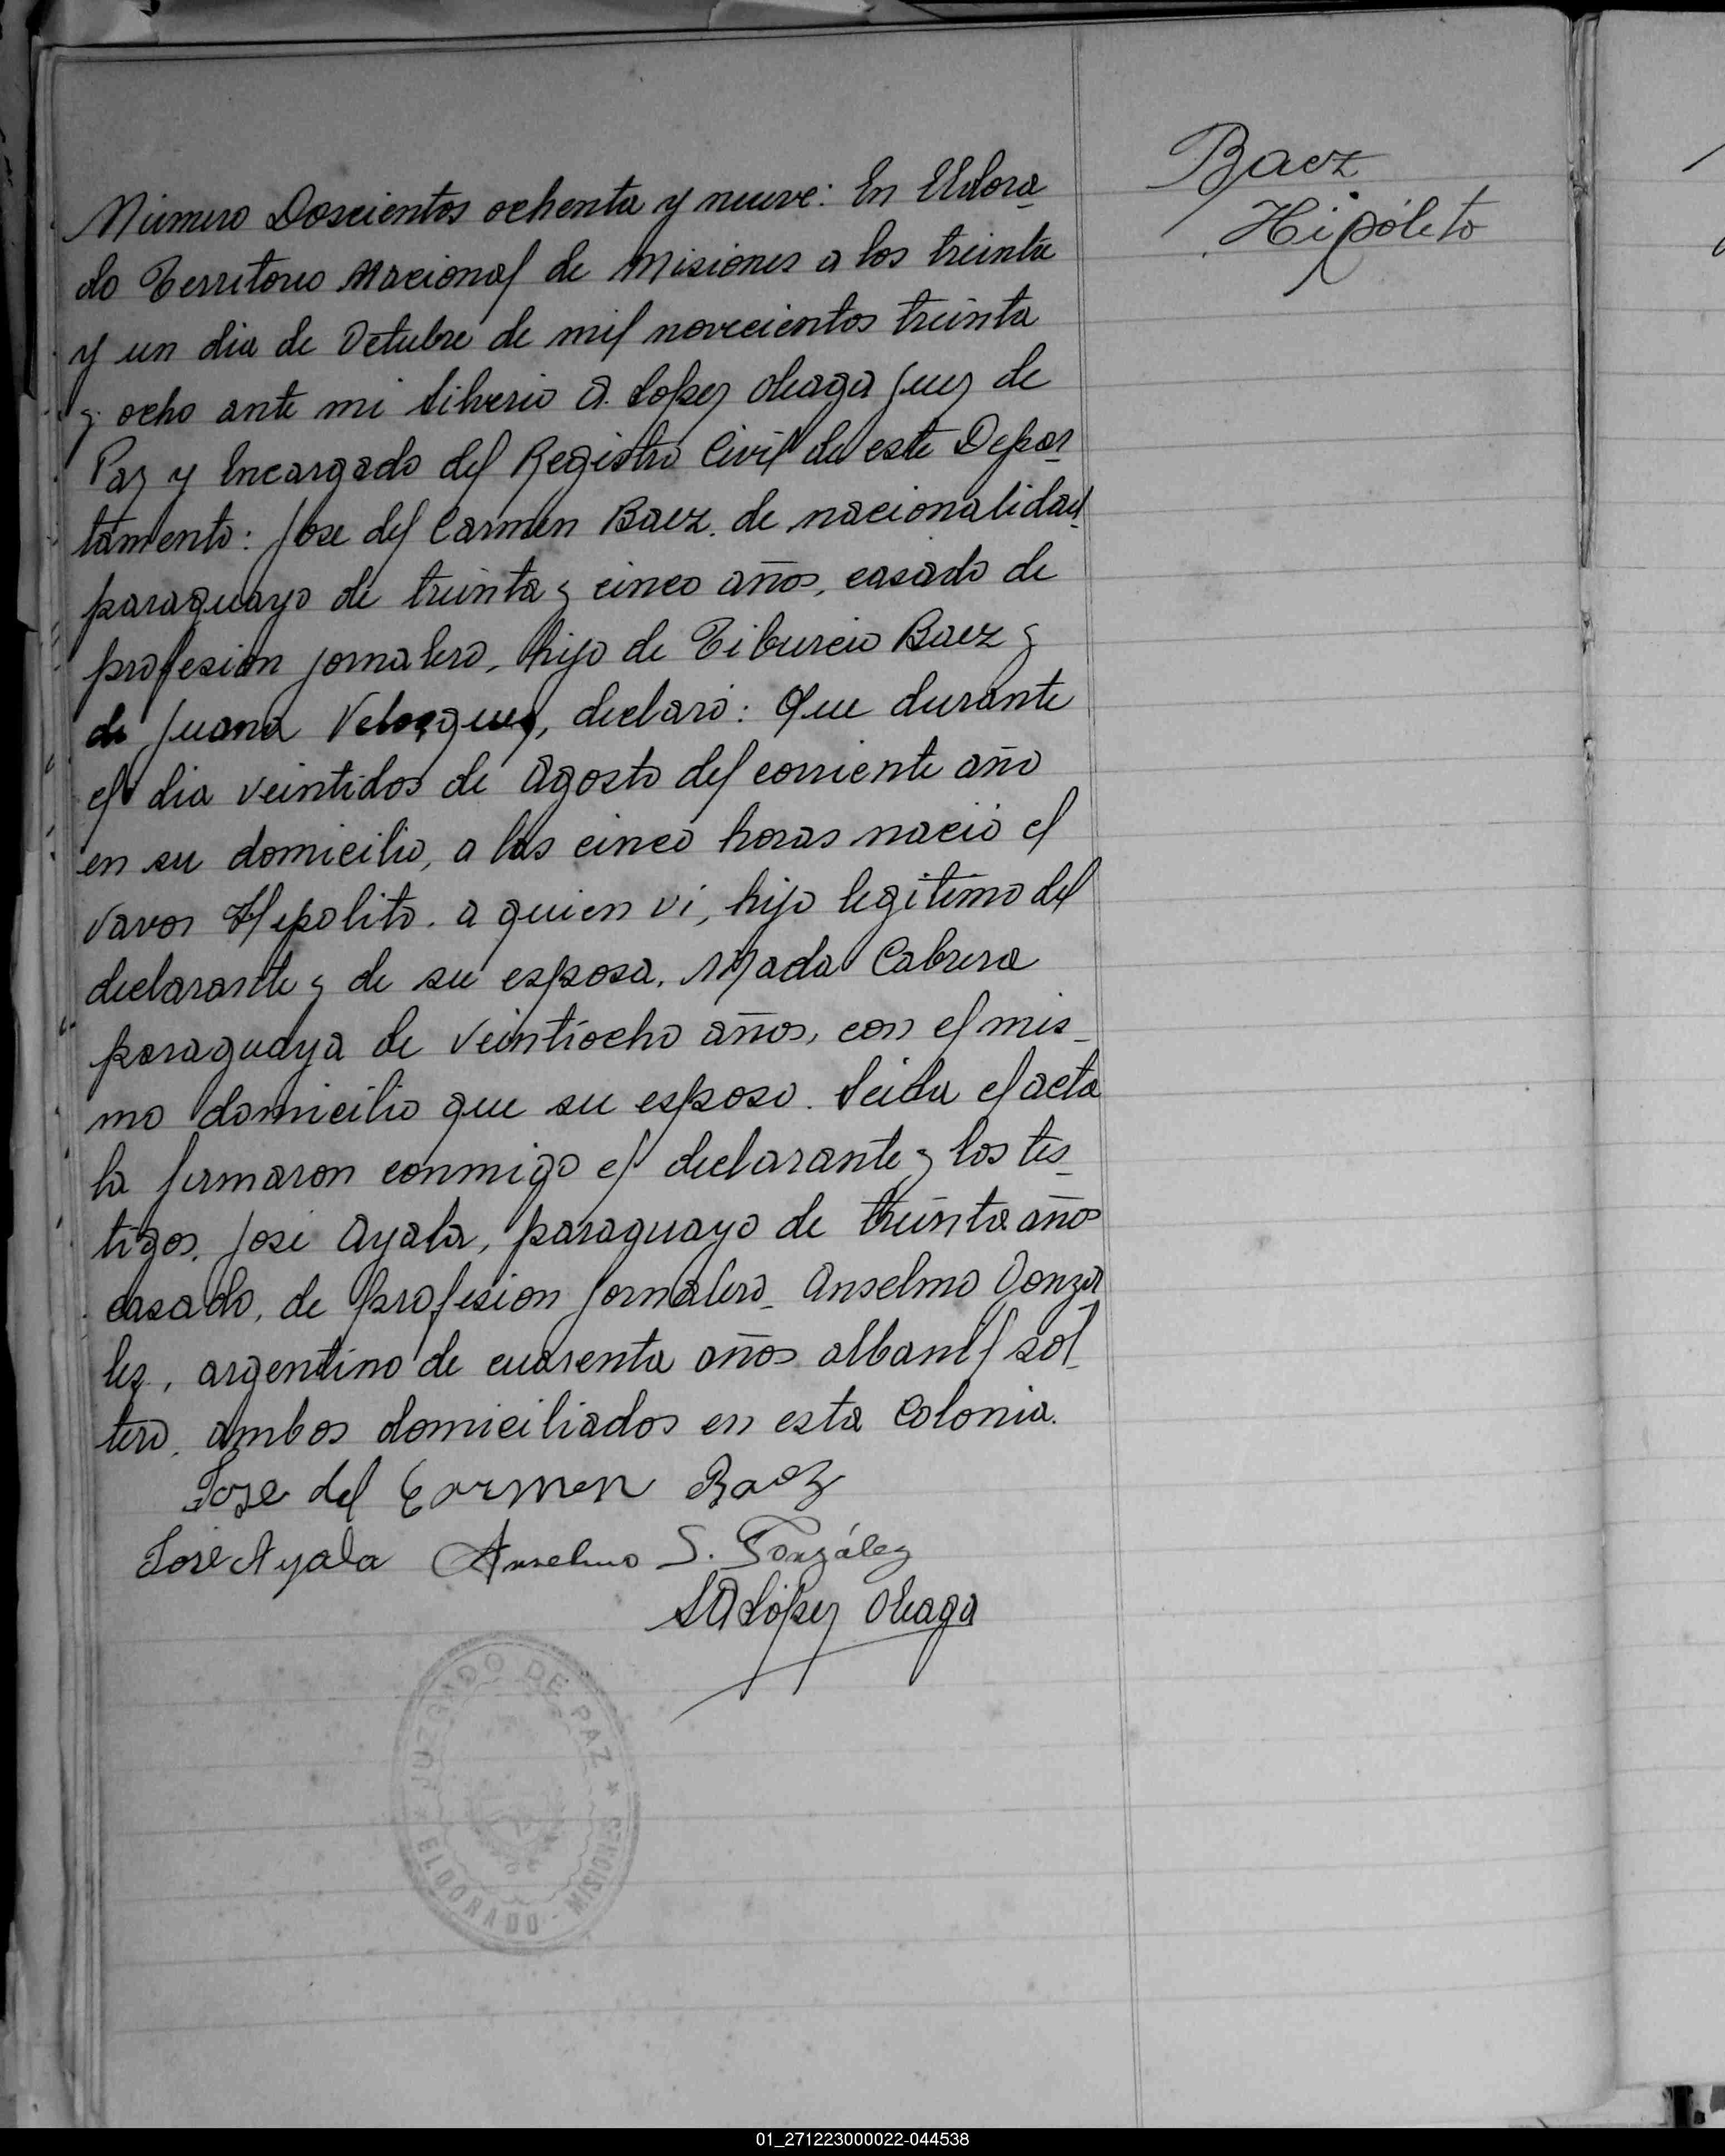 Baez
Hipólito
Número Doscientos ochenta y nueve: En Eldora_
do Territorio Nacional de Misiones a los treinta
y un dia de Octubre de mil novecientos treinta
y ocho ante mi Silverio A. Lopez Oleaga Juez de
Paz y Encargado del Registro Civil de este Depar_
tamento: Jose del Carmen Baez. de nacionalidad
paraguayo de treinta y cinco años, casado de
profesion jornalero, hijo de Tiburcio Baez y
de Juana Velazquez, declaró: Que durante
el dia veintidos de Agosto del corriente año
en su domicilio, a las cinco horas nació el
varon Hipolito. a quien vi, hijo legitimo del
declarante y de su esposa. Cabrera
paraguaya de veintiocho años, con el mis_
mo domicilio que su esposo. Leida el acta
la firmaron conmigo el declarante y los tes_
tigos. José Ayala, paraguayo de treinta años
casado, de profesion jornalero_ Anselmo Gonza
lez, argentino de cuarenta años albanil sol_
tero, ambos domiciliados en esta Colonia.
Jose del Carmen Baez
José Ayala Anselmo S. González
SA López Oleaga
JUZGADO DE PAZ * ELDORADO - MISIONES *
01_271223000022-044538